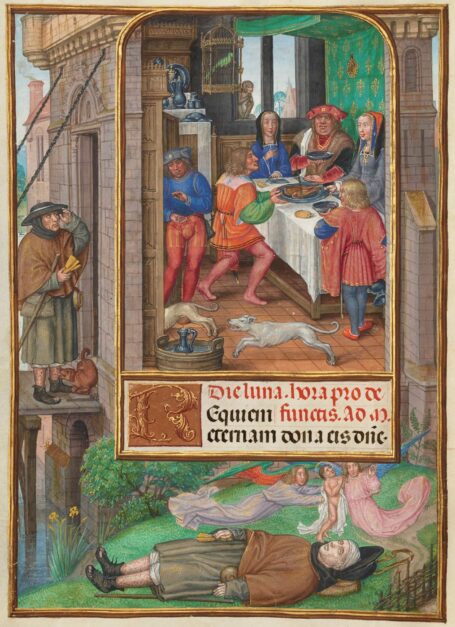 Die lune. hora pro de
Equiem functis. Ad M.
eternam dona eis dñe.